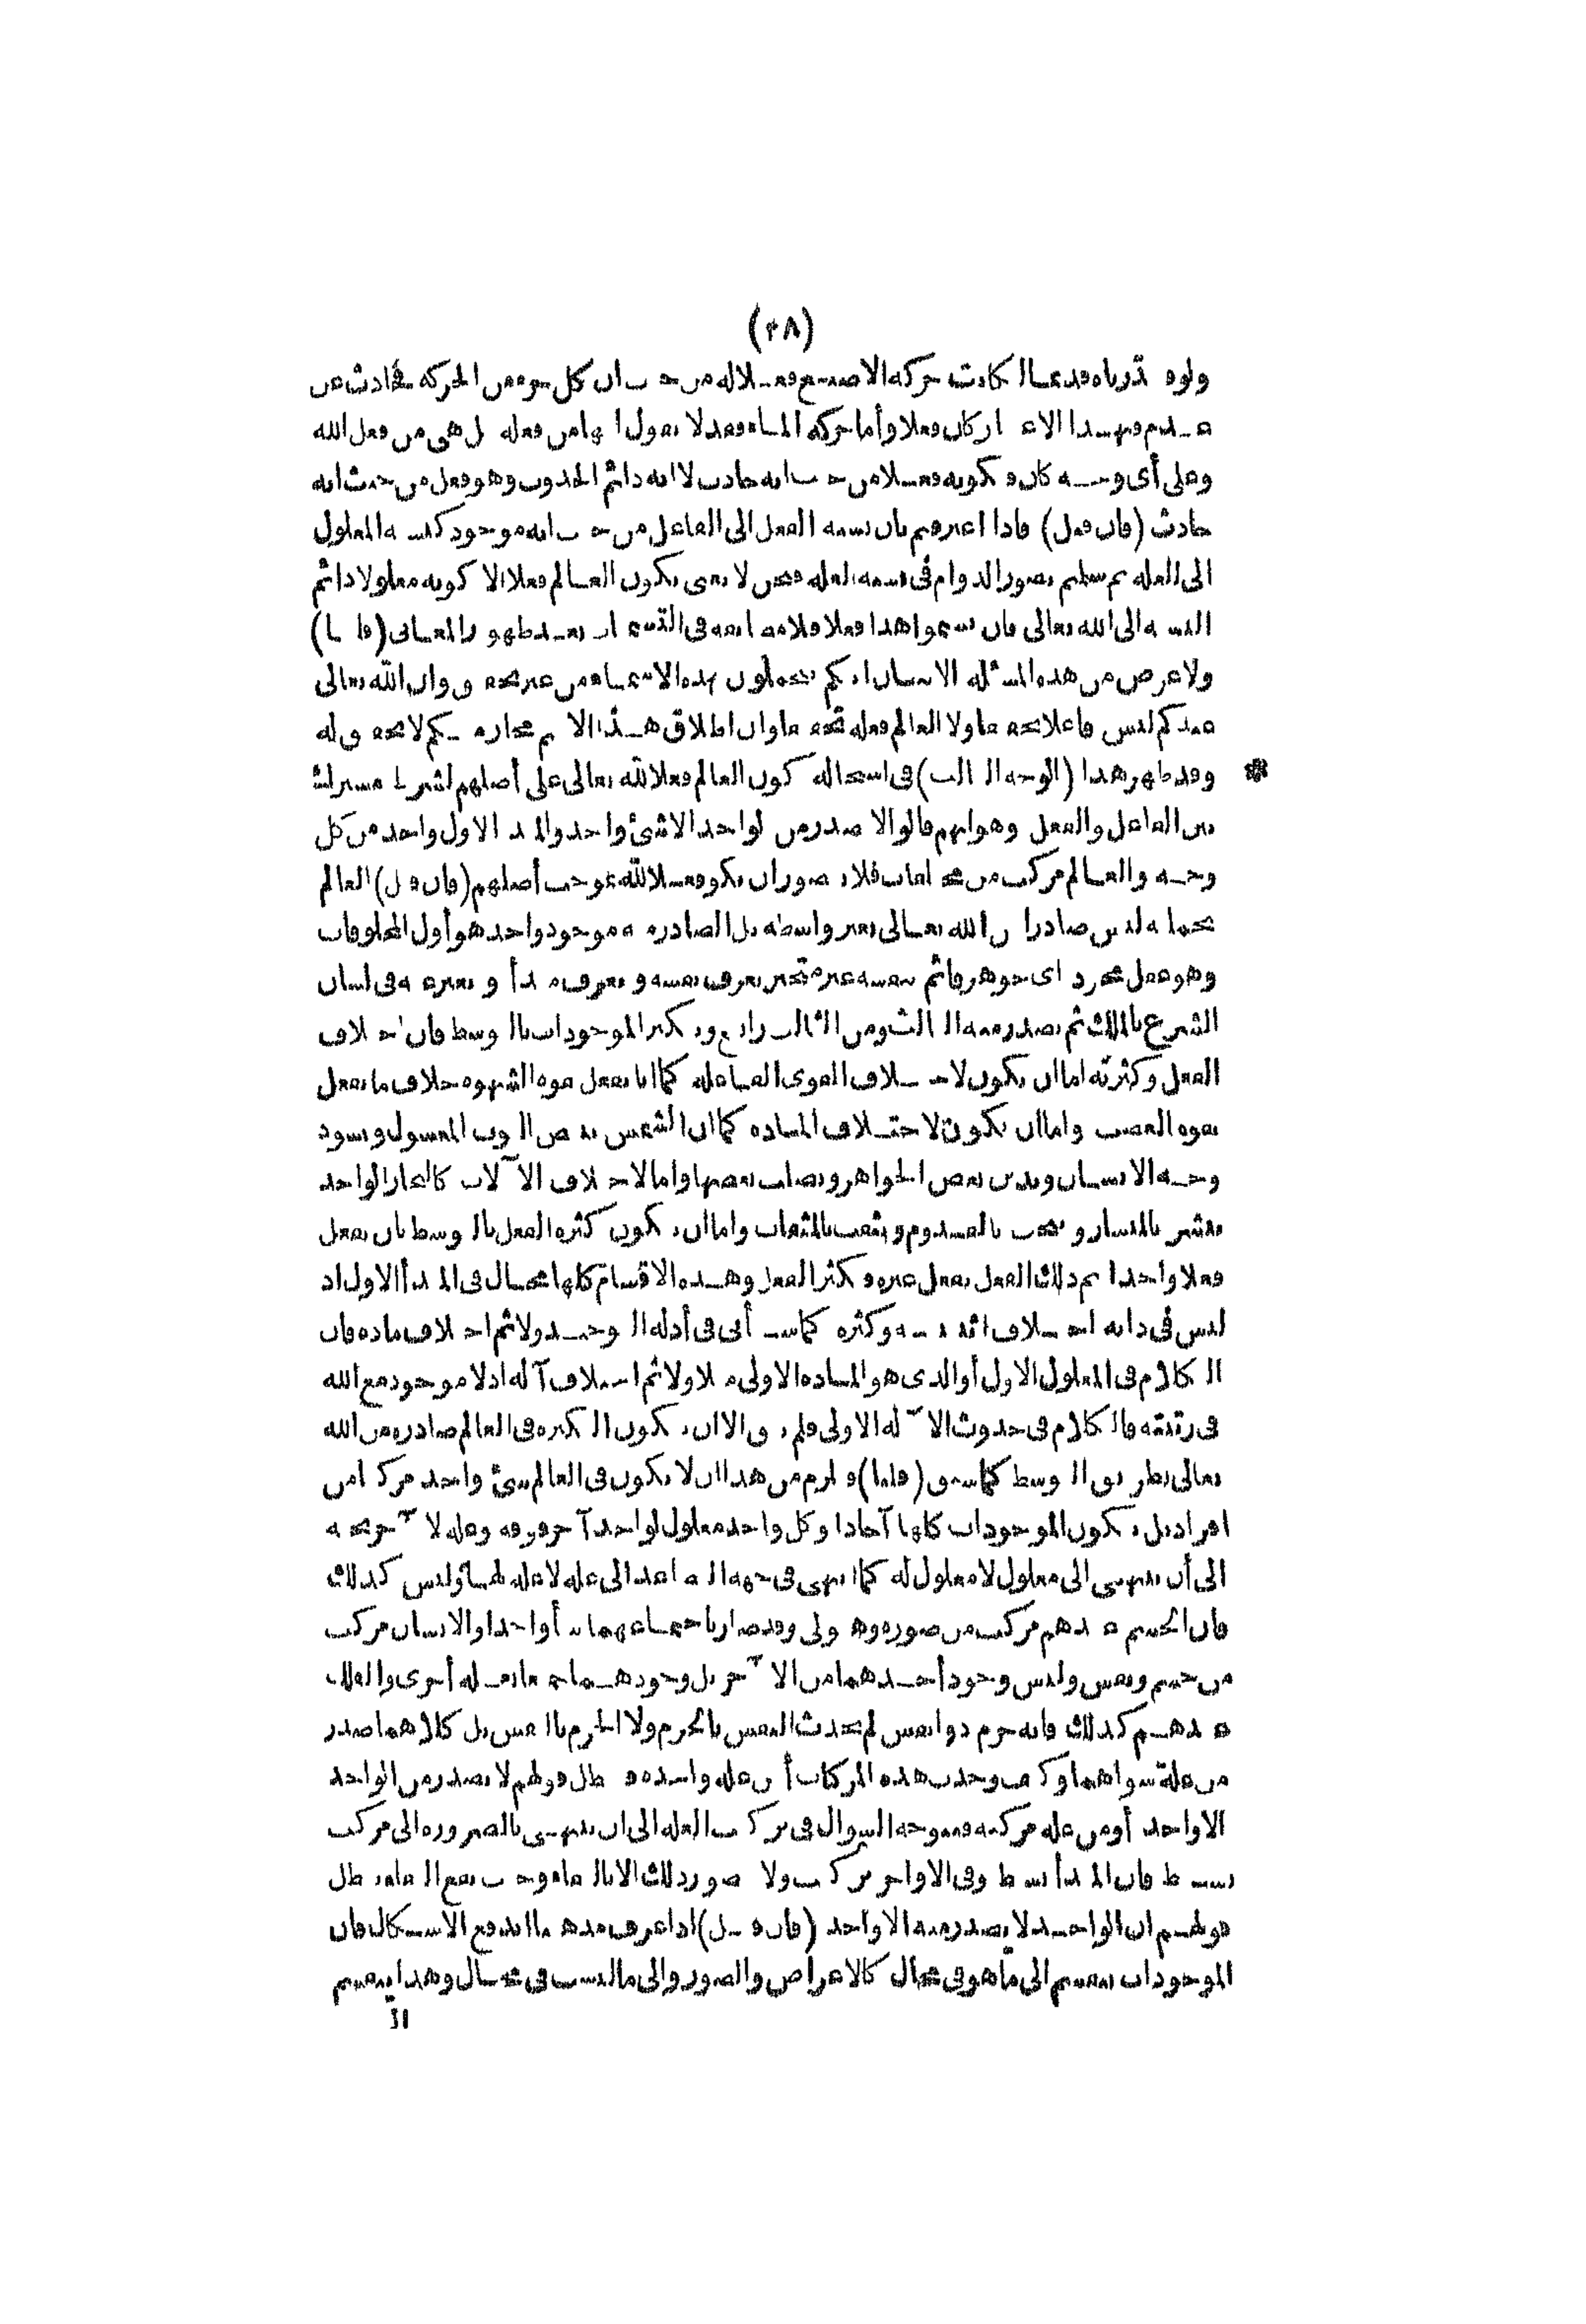 (٢٨)
ولو قدرناه قديما لكانت حركة الاصبع فعلا له من حيث ان كل جزء من الحركة فحادث عن
عدم فبهذا الاعتبار كان فعلا وأما حركة الماء فقد لا نقول انها من فعله بل هي من فعل الله
وعلى أى وجه كان فكونه فعلا من حيث انه حادث لا انه دائم الحدوث وهو فعل من حيث انه
حادث (فان قيل) فاذا اعترفتم بان نسبة الفعل الى الفاعل من حيث انه موجود كنسبة المعلول
الى العلة ثم سلمتم تصور الدوام فى نسبة العلة فنحن لا نعنى بكون العالم فعلا الا كونه معلولا دائم
النسبة الى الله تعالى فان لم تسموا هذا فعلا فلا مضايقة فى التسميات بعد ظهور المعانى (قلنا)
ولا غرض من هذه المسئلة الا بيان انكم تتجملون بهذه الاسماء من غير تحقيق وان الله تعالى
عندكم ليس فاعلا تحقيقا ولا العالم فعله تحقيقا وان اطلاق هذا الاسم مجاز منكم لا تحقيق له
وقد ظهر هذا (الوجه الثالث) فى استحالة كون العالم فعلا لله تعالى على أصلهم لشرط مشترك
بين الفاعل والفعل وهو انهم قالوا لا يصدر من الواحد الا شئ واحد والمبدأ الاول واحد من كل
وجه والعالم مركب من مختلفات فلا يتصور ان يكون فعلا لله بموجب أصلهم (فان قيل) العالم
بجملته ليس صادرا من الله تعالى بغير واسطة بل الصادر منه موجود واحد هو أول المخلوقات
وهو عقل مجرد اى جوهر قائم بنفسه غير متحيز يعرف نفسه ويعرف مبدأه ويعبر عنه فى لسان
الشرع بالملك ثم يصدر منه الثالث ومن الثالث رابع وتكثر الموجودات بالتوسط فان اختلاف
الفعل وكثرته اما ان يكون لاختلاف القوى الفاعلة كما انا نفعل بقوة الشهوة خلاف ما نفعل
بقوة الغضب واما ان يكون لاختلاف المادة كما ان الشمس تبيض الثوب المغسول وتسود
وجه الانسان وتذيب بعض الجواهر وتصلب بعضها واما لاختلاف الآلات كالنجار الواحد
ينشر بالمنشار وينحت بالقدوم ويثقب بالمثقاب واما ان تكون كثرة الفعل بالتوسط بان يفعل
فعلا واحدا ثم ذلك الفعل يفعل غيره فيكثر الفعل وهذه الاقسام كلها محال فى المبدأ الاول اذ
ليس فى ذاته اختلاف اثنينية وكثرة كما سيأتى فى أدلة التوحيد ولا ثم اختلاف مادة فان
الكلام فى المعلول الاول أو الذى هو المادة الاولى مثلا ولا ثم اختلاف آلة اذ لا موجود مع الله
فى رتبته فالكلام فى حدوث الآلة الاولى فلم يبق الا ان تكون الكثرة فى العالم صادرة من الله
تعالى بطريق التوسط كما سبق (قلنا) فيلزم من هذا ان لا يكون فى العالم شئ واحد مركبا من
افراد بل تكون الموجودات كلها آحادا وكل واحد معلول لواحد آخر فوقه وعلة لآخر تحته
الى أن ينتهى الى معلول لا معلول له كما انتهى فى جهة التصاعد الى علة لا علة لها وليس كذلك
فان الجسم عندهم مركب من صورة وهيولى وقد صار باجتماعهما شيأ واحدا والانسان مركب
من جسم ونفس وليس وجود أحدهما من الآخر بل وجودهما جميعا بعلة أخرى والفلك
عندهم كذلك فانه جرم ذو نفس لم تحدث النفس بالجرم ولا الجرم بالنفس بل كلاهما صدر
من علة سواهما فكيف وجدت هذه المركبات أمن علة واحدة فيبطل قولهم لا يصدر من الواحد
الا واحد أو من علة مركبة فيتوجه السؤال فى تركيب العلة الى ان ينتهى بالضرورة الى مركب
بسيط فان المبدأ بسيط وفى الاواخر تركيب ولا يتصور ذلك الا بالتقاء وحيث يقع التقاء يبطل
قولهم ان الواحد لا يصدر منه الا واحد (فان قيل) اذا عرف مذهبنا اندفع الاشكال فان
الموجودات تنقسم الى ما هو فى محال كالاعراض والصور والى ما ليست فى محال وهذا ينقسم
الى